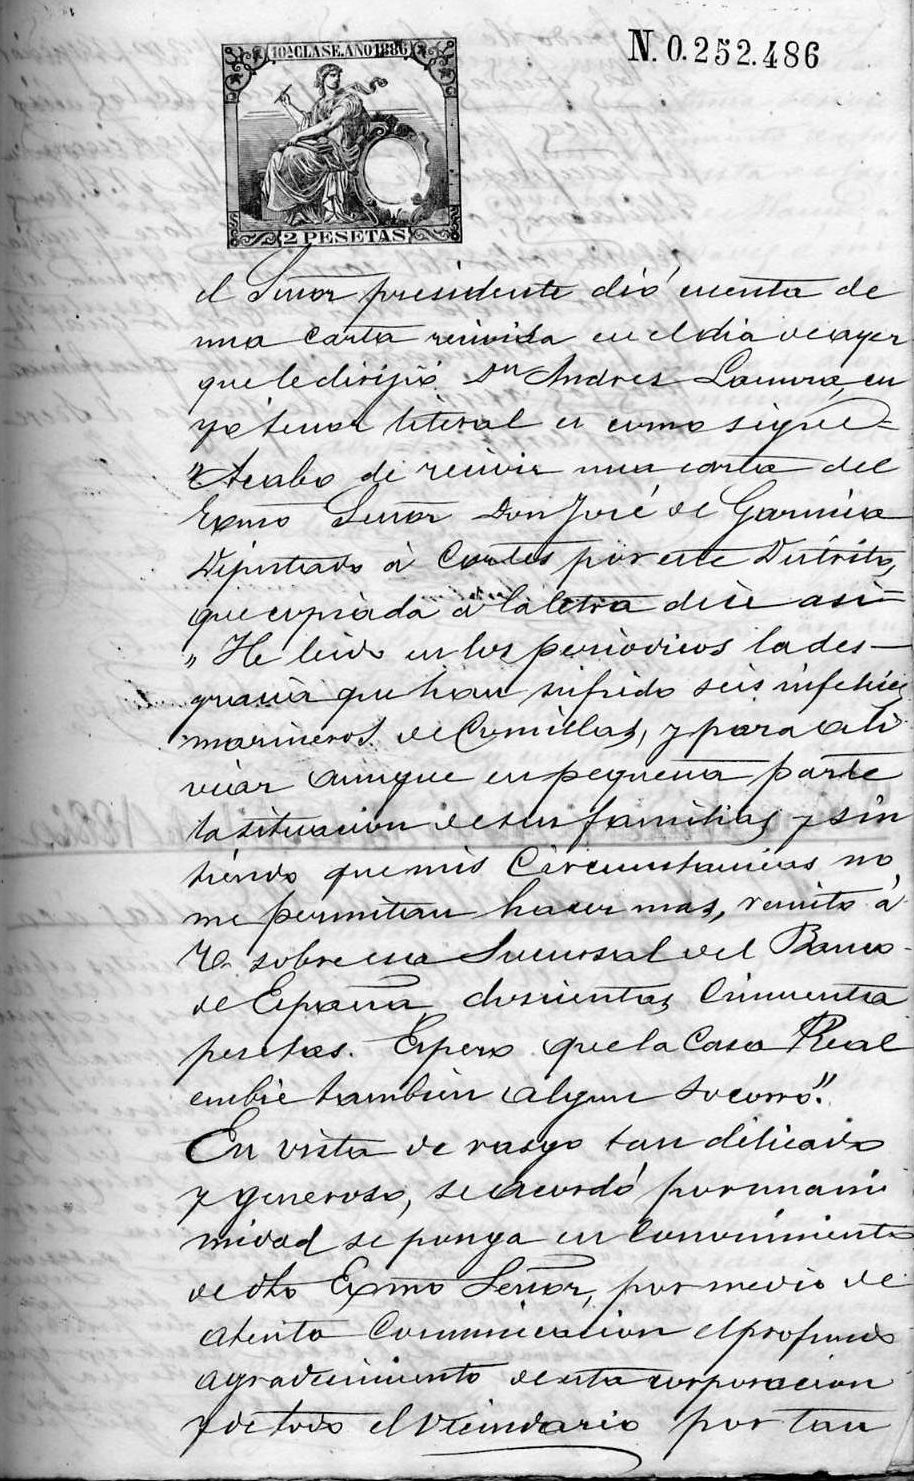 10ª CLASE. AÑO 1886
N. 0.252.486
2 PESETAS
el Señor presidente dió cuenta de
una carta recivida en el dia de ayer
que le dirijió Dn Andres Lamora, cu
yo tenor literal es como sigue=
"Acabo de recivir una carta del
Exmo Señor Don José de Garnica
Diputado á Cortes por este Distrito,
que copiada á la letra dice asi=
"He leido en los periodicos la des-
gracia que han sufrido seis infelices
marineros de Comillas, y para ali
viar aunque en pequeña parte
la situacion de sus familias y sin
tiendo que mis Circunstancias no
me permitan hacer mas, remito á
V. sobre esa Sucursal del Banco
de España doscientas Cincuenta
pesetas. Espero que la Casa Real
embie tambien algun socorro".
En vista de rasgo tan delicado
y generoso, se acordó por unani
midad se ponga en Conocimiento
de dho Exmo Señor, por medio de
atenta Comunicacion el profundo
agradecimiento de esta corporacion
y de todo el Vecindario por tan